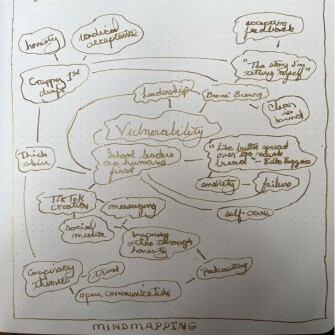 honesty
radical
acceptance
accepting
feedback
Crappy 1st
draft
"The story I'm
telling myself"
Leadership
Brené Brown
Clear is
kind
Vulnerability
Thick
skin
School leaders
as humans
first
"Like butter spread
over too much
bread" - Bilbo Baggins
anxiety
failure
TikTok
creation
messaging
self care
social
media
Inspiring
others through
honesty
Conspiracy
theories
trust
Podcasting
open communication
MINDMAPPING